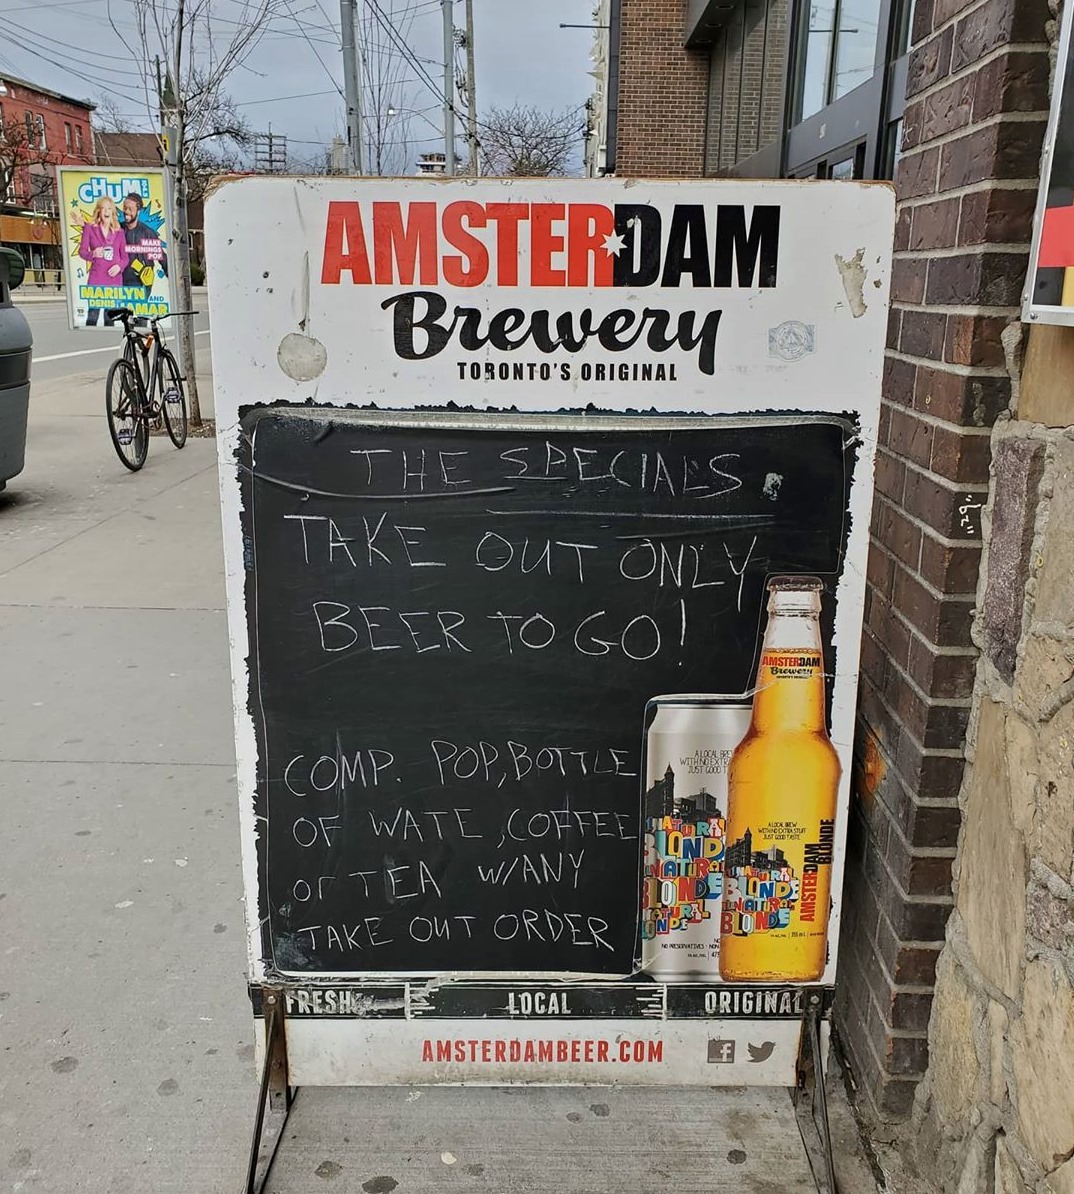 CHUM
MAKE
MORNINGS
POP
MARILYN AND
DENIS JAMAR
AMSTERDAM
Brewery
TORONTO'S ORIGINAL
THE SPECIALS.
TAKE OUT ONLY
BEER TO GO!
COMP. POP, BOTTLE
OF WATE, COFFEE
or TEA W/ANY
TAKE OUT ORDER
AMSTERDAM
Brewery
A LOCAL BREW
WITH NO EXTRA STUFF
JUST GOOD TASTE
NATURAL
BLONDE
AMSTERDAM
BLONDE
NO PRESERVATIVES
FRESH
LOCAL
ORIGINAL
AMSTERDAMBEER.COM
"29"